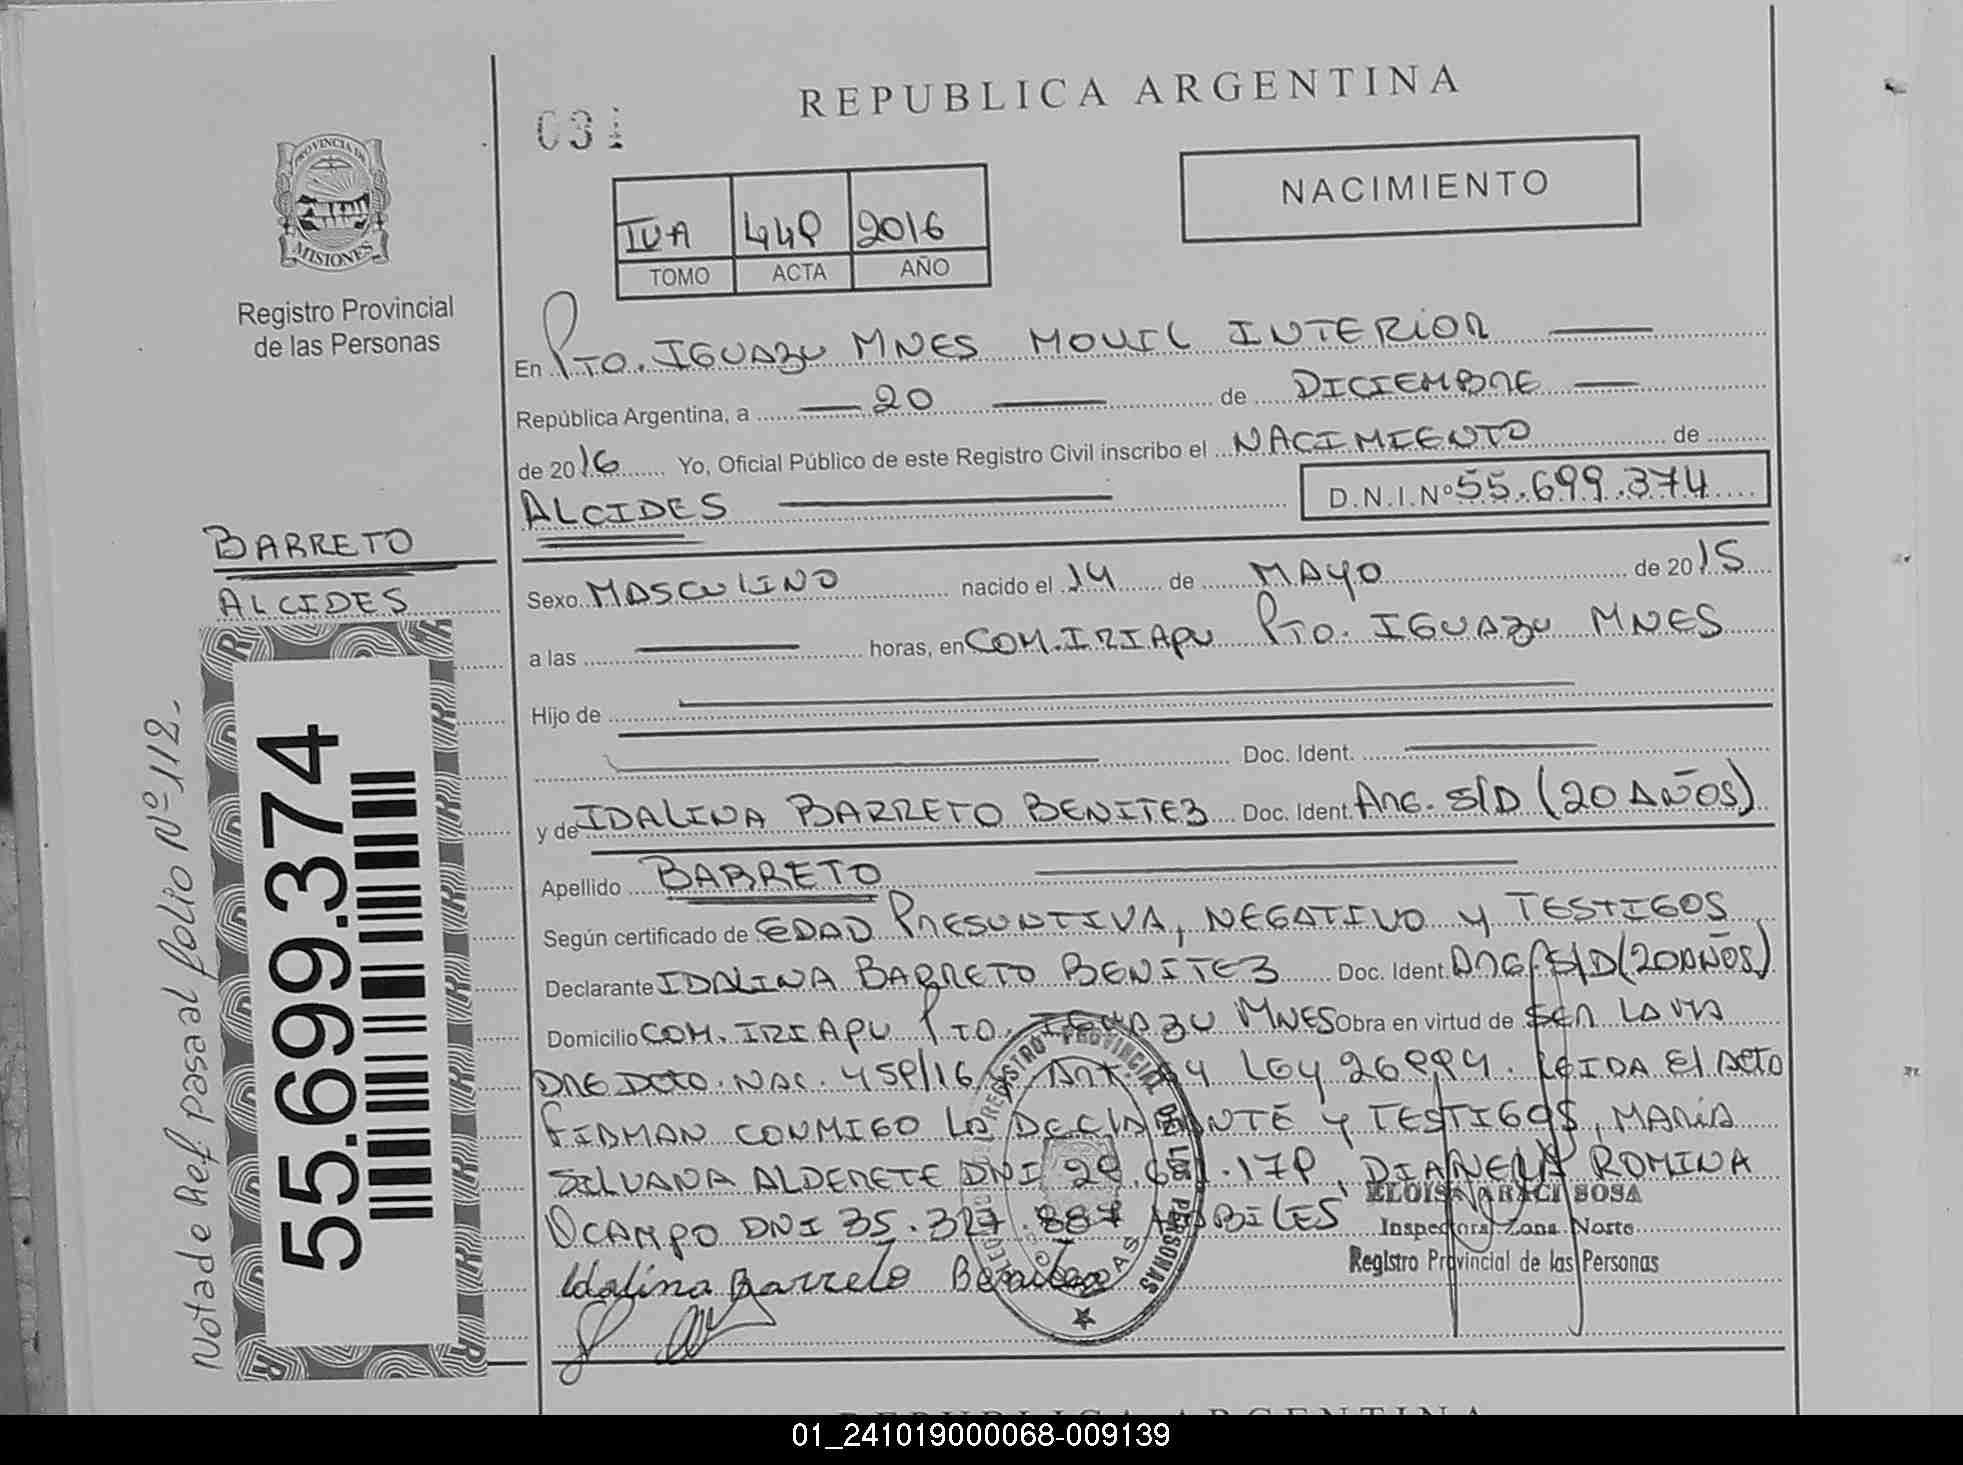 REPUBLICA ARGENTINA
031
NACIMIENTO
PROVINCIA DE
MISIONES
Registro Provincial
de las Personas
IVA 448 2016
TOMO ACTA AÑO
En Pto. IGUAZU MNES MOVIL INTERIOR
República Argentina, a 20 de DICIEMBRE
de 2016 Yo, Oficial Público de este Registro Civil inscribo el NACIMIENTO de
ALCIDES D.N.I.Nº 55.699.374
BARRETO
ALCIDES
Sexo MASCULINO nacido el 14 de MAYO de 2015
a las horas, en COM. IRIAPU Pto. IGUAZU MNES
Hijo de
Doc. Ident.
y de IDALINA BARRETO BENITEZ Doc. Ident. ARG. S/D (20 AÑOS)
Apellido BARRETO
Según certificado de EDAD PRESUNTIVA, NEGATIVO y TESTIGOS
Declarante IDALINA BARRETO BENITEZ Doc. Ident. ARG. S/D (20 AÑOS)
Domicilio COM. IRIAPU Pto. IGUAZU MNES Obra en virtud de SER LA MA
DRE Dcto. NAC. 459/16 Art. LEY 26994. LEIDA El ActO
FIRMAN CONMIGO LA DECLARANTE y TESTIGOS, MARIA
SILVANA ALDERETE DNI ROMINA
OCAMPO DNI 35.327.887 HABILES
Idalina Barreto Benitez
REGISTRO PROVINCIAL DE LAS PERSONAS
ELOISA ARACI SOSA
Inspectora Zona Norte
Registro Provincial de las Personas
55.699.374
Nota de Ref pasa al folio Nº 112.-
REPUBLICA ARGENTINA
01_241019000068-009139